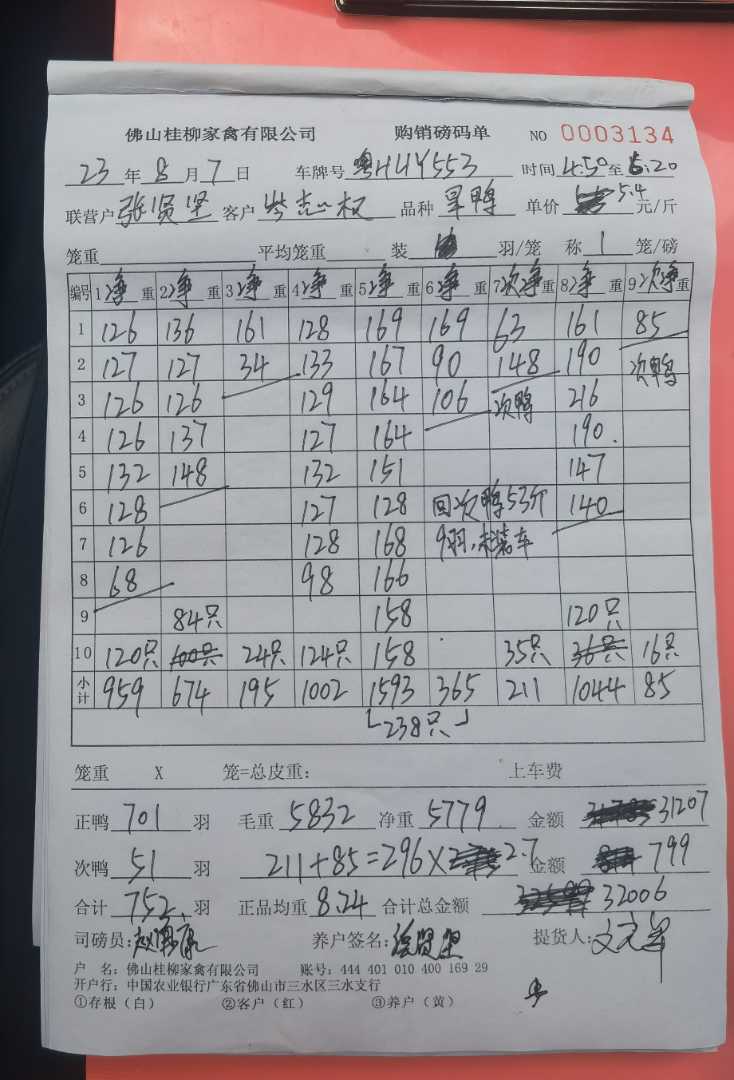 佛山桂柳家禽有限公司 购销磅码单 NO 0003134
23年8月7日 车牌号粤HUY553 时间4:50至5:20
联营户张贤坚 客户岑志权 品种旱鸭 单价5.4元/斤
笼重 平均笼重 装 羽/笼 称1笼/磅
编号 1净重 2净重 3净重 4净重 5净重 6净重 7次净重 8净重 9次净重
1 126 136 161 128 169 169 63 161 85
2 127 127 34 133 167 90 148 190 次鸭
3 126 126 129 164 106 次鸭 216
4 126 137 127 164 190
5 132 148 132 151 147
6 128 127 128 回次鸭53斤 140
7 126 128 168 9羽,未装车
8 68 98 166
9 84只 158 120只
10 120只 100只 24只 124只 158 35只 36只 16只
小计 959 674 195 1002 1593 365 211 1044 85
「238只」
笼重 X 笼=总皮重: 上车费
正鸭701羽 毛重5832 净重5779 金额31207
次鸭51羽 211+85=296×2.7 金额799
合计752羽 正品均重8.24 合计总金额32006
司磅员: 养户签名:张贤坚 提货人:
户 名: 佛山桂柳家禽有限公司 账号: 444 401 010 400 169 29
开户行: 中国农业银行广东省佛山市三水区三水支行
①存根(白) ②客户(红) ③养户(黄)